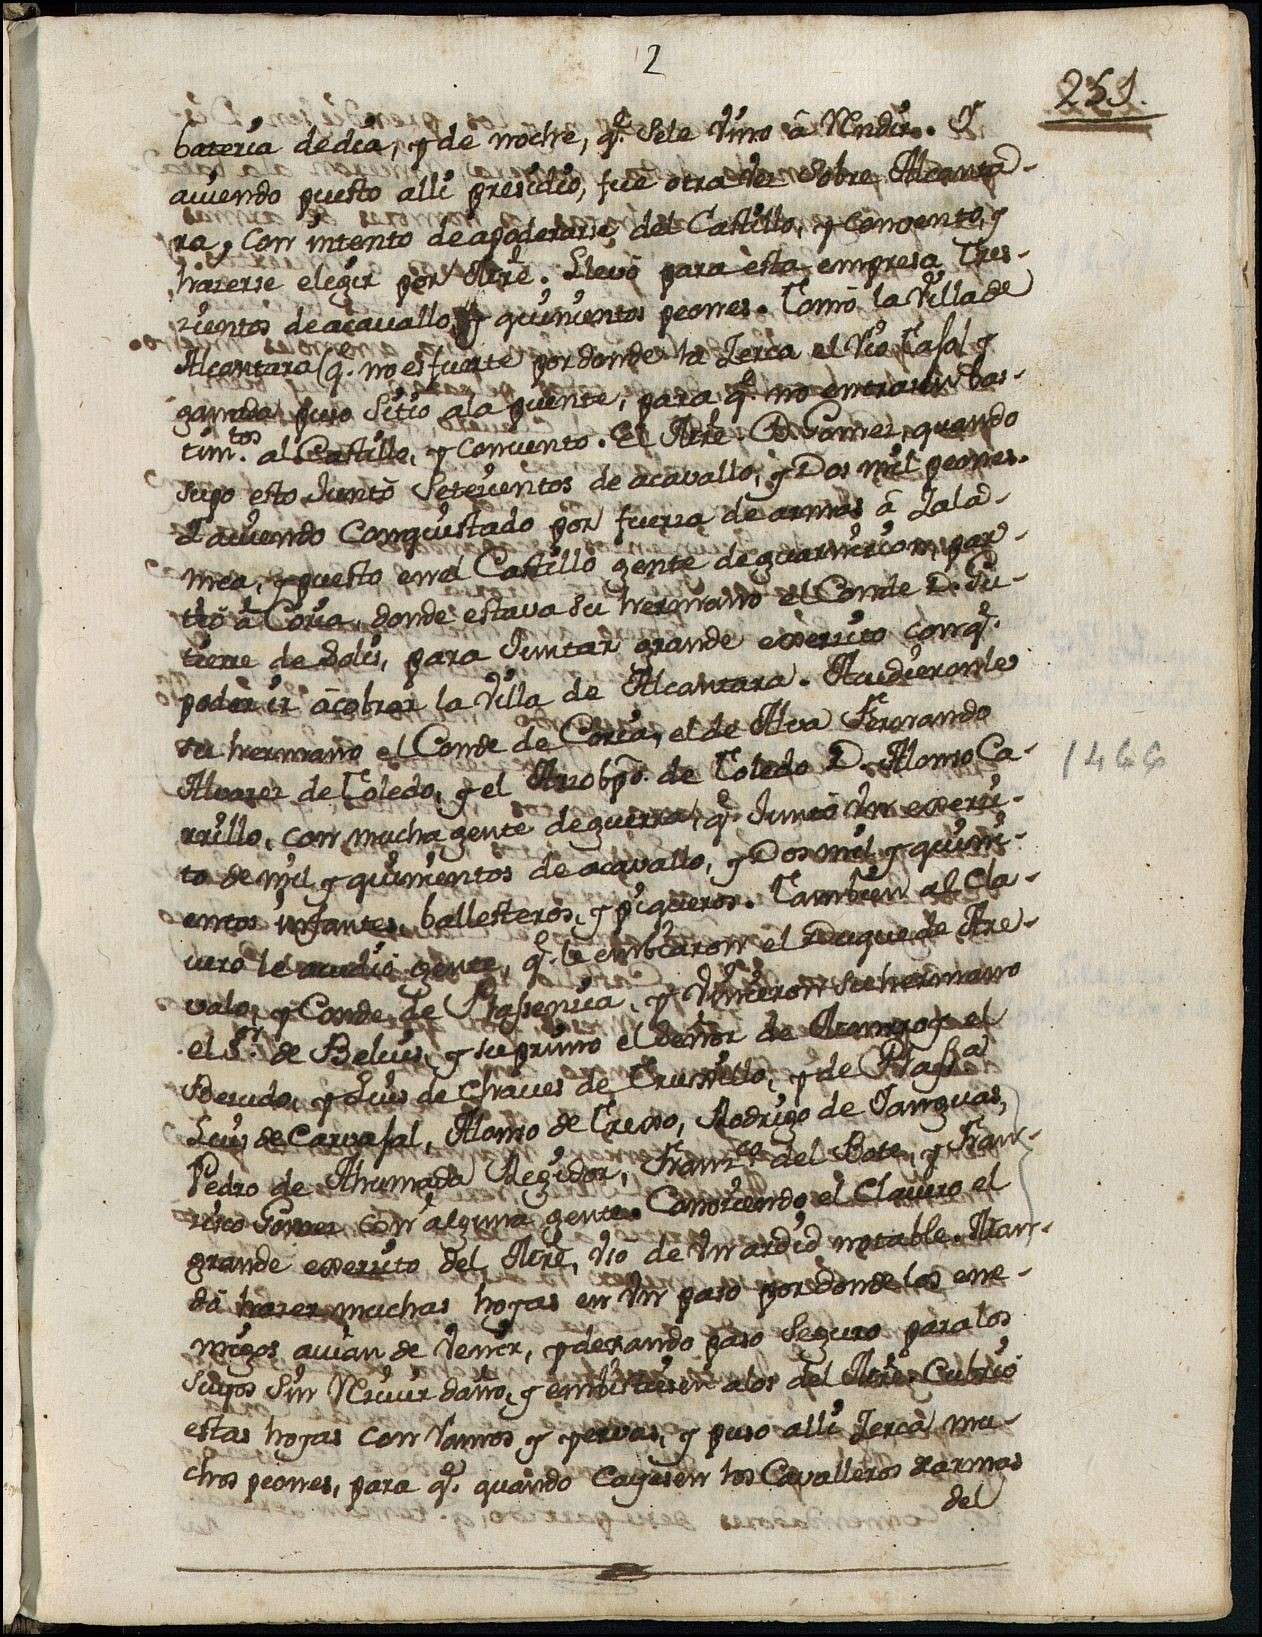 2
251.
bateria dedia, y de noche, q.e sele vino â Rendir. Y
auiendo puesto alli presidio, fue otra vez sobre Alcanta-
ra, con intento de apoderarse del Castillo, y Conuento, y
hazerse elegir por Mre. Lleuô para esta empresa Tres-
zientos de acauallo, y quinientos peones. Tomô la Villa de
Alcantara (q. no es fuerte por donde la Zerca el Rio Tajo) y
ganada puso sitio ala puente, para q.e no entrasen bas-
tim.tos al Castillo, y Conuento. El Mre. D. Gomez, quando
supo esto Juntô Setezientos de acauallo, y Dos mil peones.
Y auiendo Conquistado por fuerza de armas â Zala-
mea, y puesto en el Castillo gente de guarnicion, par-
tiô â Coria, donde estava su hermano el Conde D. Gu-
tierre de Solis, para Juntar grande exercito con q.e
poder ir â cobrar la Villa de Alcantara. Acudieronle
su hermano el Conde de Coria, el de Alva Fernando
Alvarez de Toledo, y el Arzobpo. de Toledo D. Alonso Ca-
rrillo, con mucha gente de guerra, q.e Juntô Vn exerci-
to de mil y quinientos de acavallo, y Dos mil y quini-
entos infantes, ballesteros, y piqueros. Tambien al Cla-
uero le acudiô gente, q.e le embiaron el Duque de Are-
valo, y Conde de Plasencia, y Vinieron su hermano
el S.r de Beluis, y su primo el Señor de y el
y Luis de Chaues de Truxillo, y de Plas.a
Luis de Carvajal, Alonso de Trexo, Rodrigo de Yanguas,
Pedro de Ahumada Regidor, Fran.co del Bote, y Fran-
cisco Gomez con alguna gente. Conoziendo el Clauero el
grande exercito del Mre, Vso de Vn ardid notable. Man-
dô hazer muchas hoyas en Vn paso por donde los ene-
migos auian de Venir, y dexando paso Seguro para los
suyos Sin Reciuir daño, y embistiesen alos del Mre. Cubriô
estas hoyas con ramos y yervas, y puso alli Zerca mu-
chos peones, para q.e quando Cayesen los Cavalleros darmas
del
1466